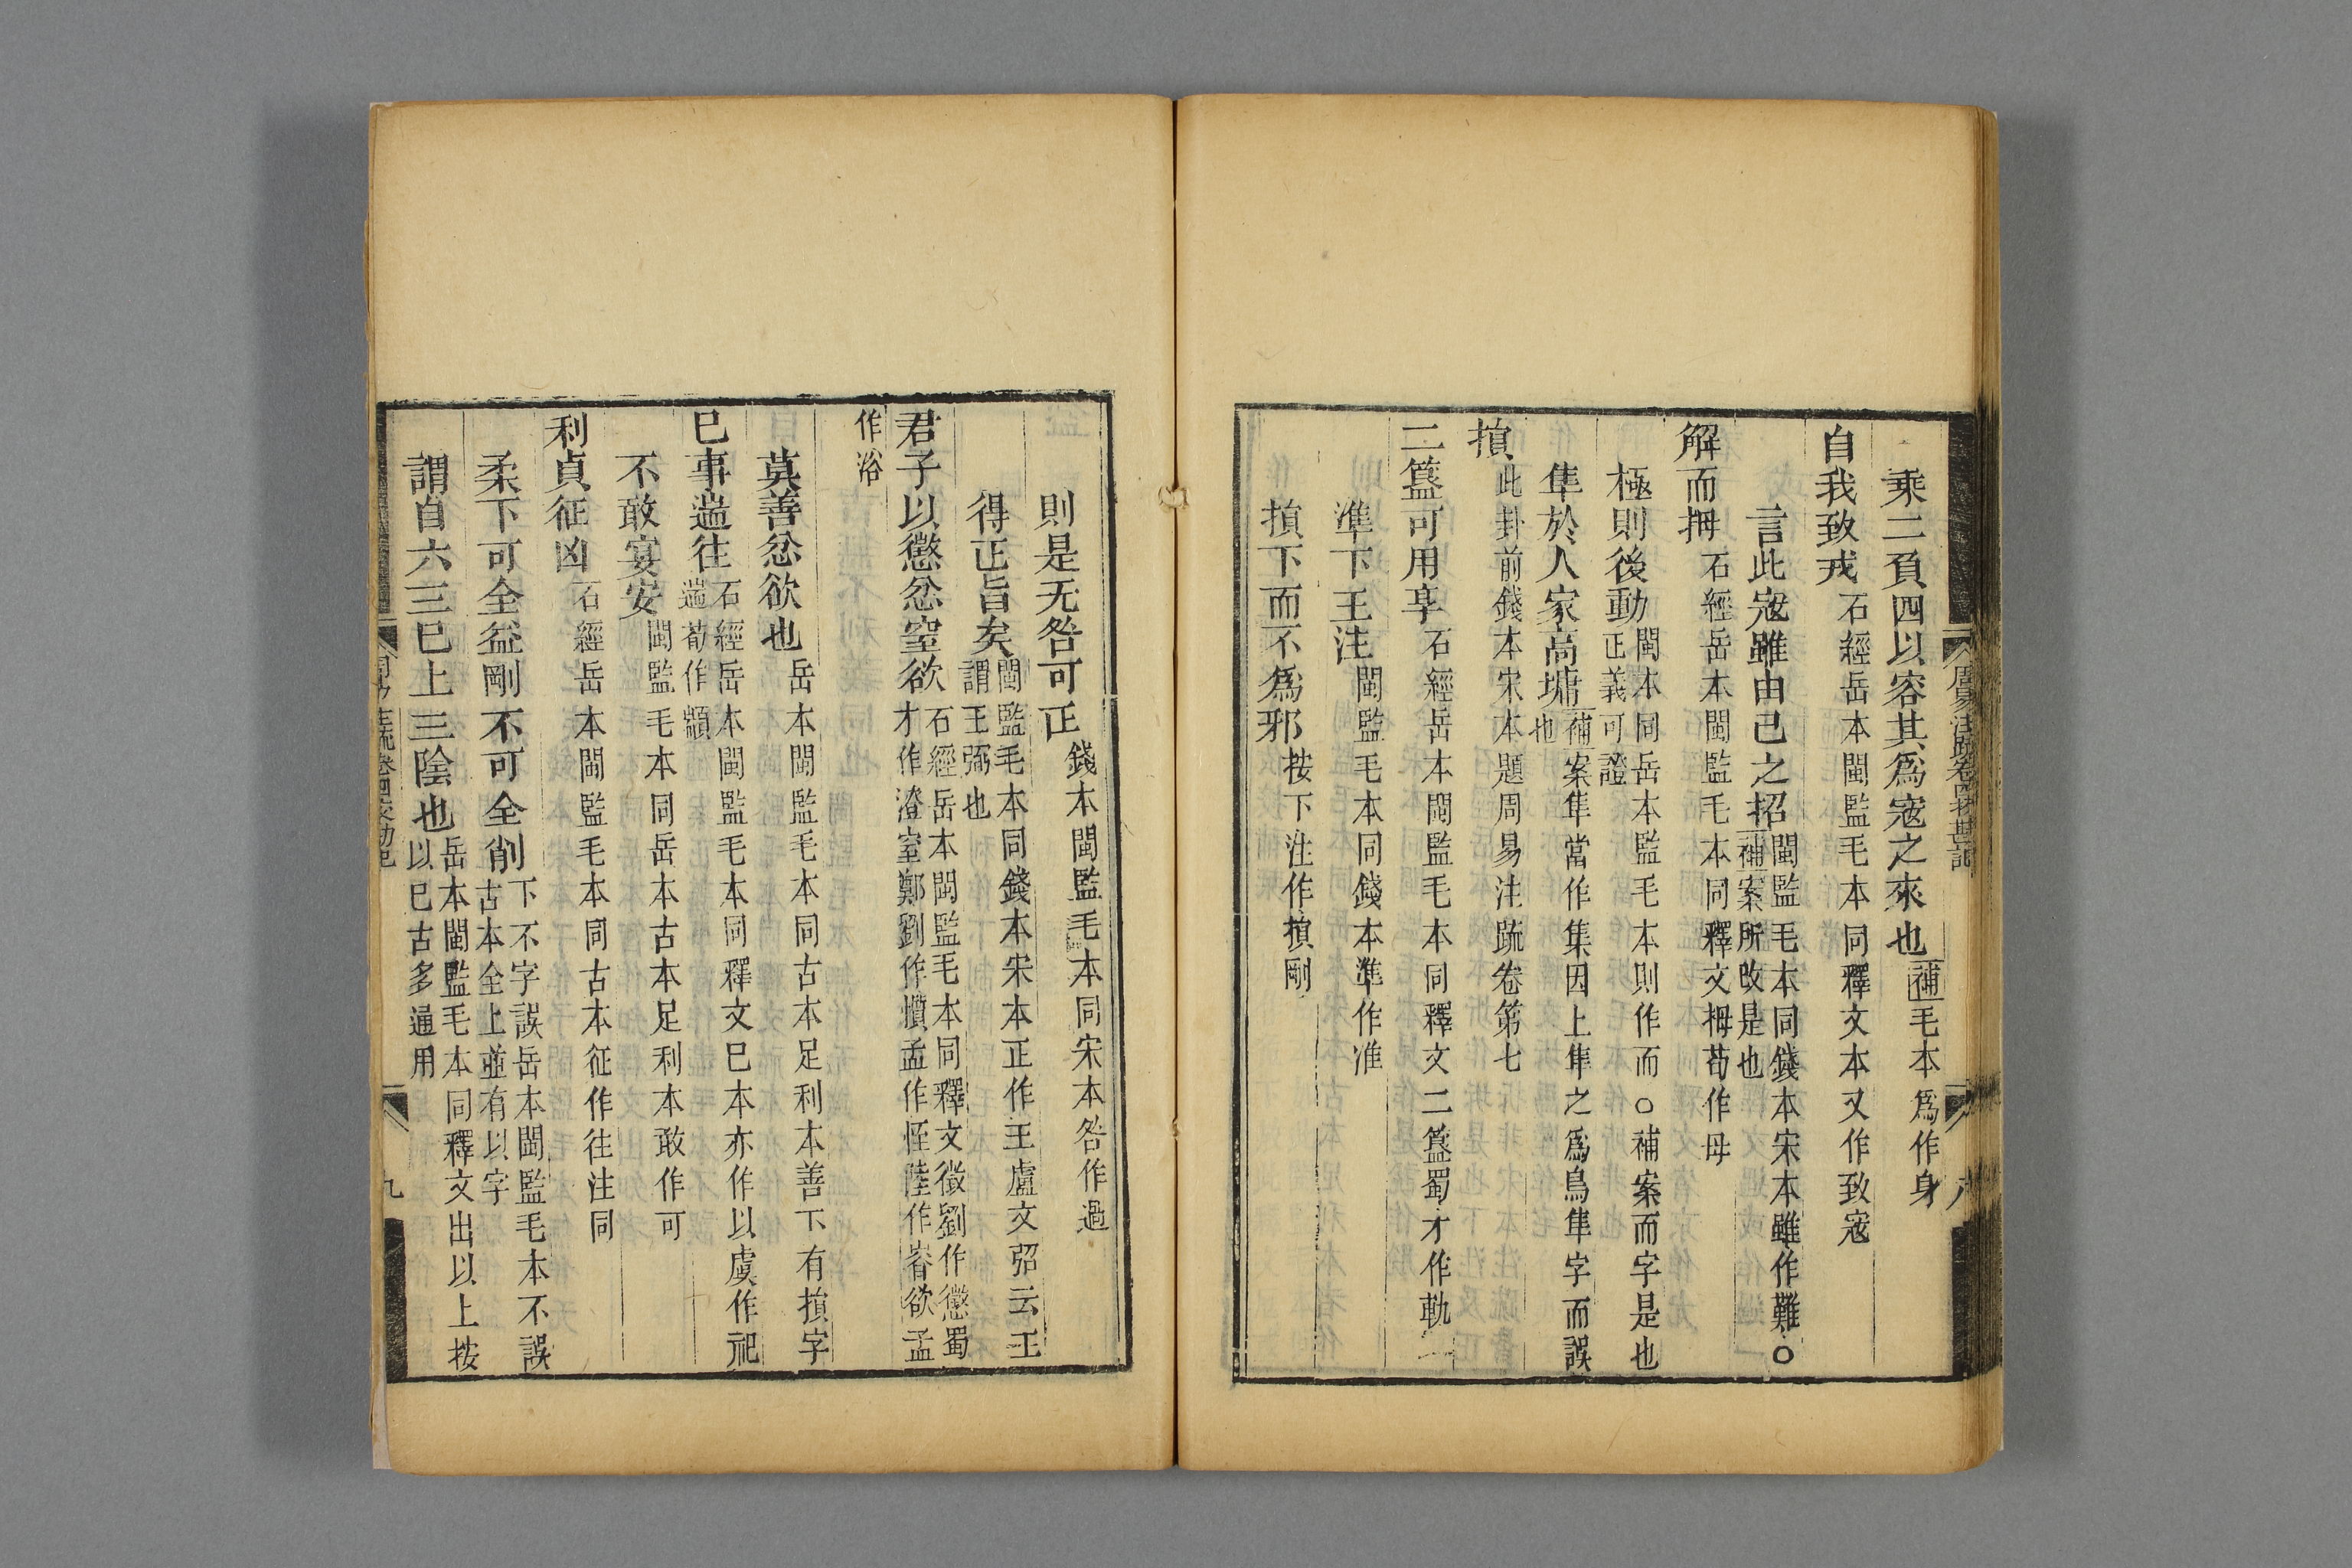 乘二負四以容其爲寇之來也補毛本爲作身
自我致戎石經岳本閩監毛本同釋文本又作致寇
言此寇雖由己之招閩監毛本同錢本宋本雖作難○補案所改是也
解而拇石經岳本閩監毛本同釋文拇荀作母
極則後動閩本同岳本監毛本則作而○補案而字是也正義可證
隼於人家高墉補案隼當作集因上隼之爲鳥隼字而誤也
損此卦前錢本宋本題周易注疏卷第七
二簋可用享石經岳本閩監毛本同釋文二簋蜀才作軌
準下王注閩監毛本同錢本準作准
損下而不爲邪按下注作損剛
周易注疏卷四校勘記
八
則是无咎可正錢本閩監毛本同宋本咎作過
得正旨矣閩監毛本同錢本宋本正作王盧文弨云王謂王弼也
君子以懲忿窒欲石經岳本閩監毛本同釋文徵劉作懲蜀才作澄窒鄭劉作懫孟作恎陸作𣦸欲孟
作浴
莫善忿欲也岳本閩監毛本同古本足利本善下有損字
巳事遄往石經岳本閩監毛本同釋文巳本亦作以虞作祀遄荀作顓
不敢宴安閩監毛本同岳本古本足利本敢作可
利貞征凶石經岳本閩監毛本同古本征作往注同
柔下可全益剛不可全削下不字誤岳本閩監毛本不誤古本全上並有以字
謂自六三巳上三陰也岳本閩監毛本同釋文出以上按以巳古多通用
九